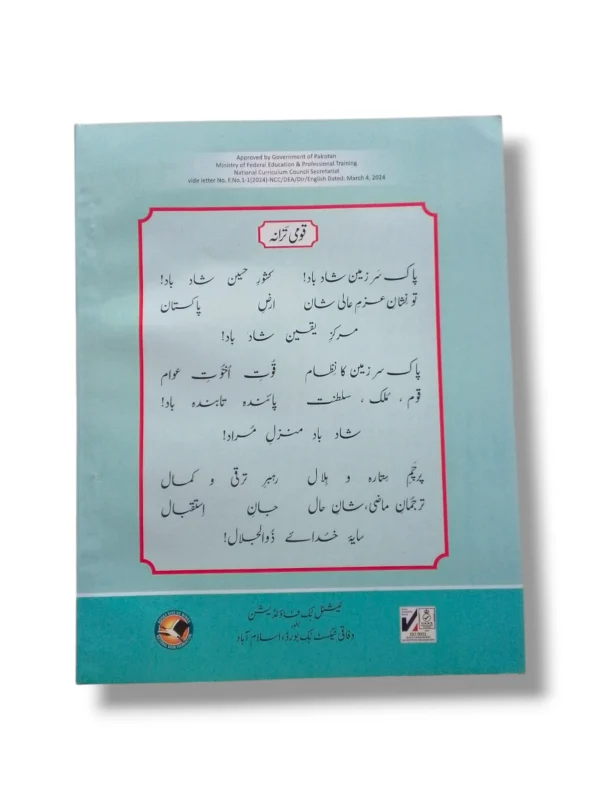 Approved by Government of Pakistan
Ministry of Federal Education & Professional Training
National Curriculum Council Secretariat
vide letter No. F.No.1-1(2024)-NCC/DEA/Dir/English Dated. March 4, 2024
قومی ترانہ
پاک سَر زمین شاد باد! کشورِ حسین شاد باد!
تو نشانِ عزمِ عالی شان ارضِ پاکستان
مرکزِ یقین شاد باد!
پاک سر زمین کا نظام قوّتِ اُخوّتِ عوام
قوم ، مُلک ، سلطنت پائندہ تابندہ باد!
شاد باد منزلِ مُراد!
پرچمِ ستارہ و ہلال رہبرِ ترقی و کمال
ترجمانِ ماضی، شانِ حال جانِ استقبال
سایۂ خدائے ذوالجلال!
نیشنل بُک فاؤنڈیشن
وفاقی ٹیکسٹ بُک بورڈ، اسلام آباد